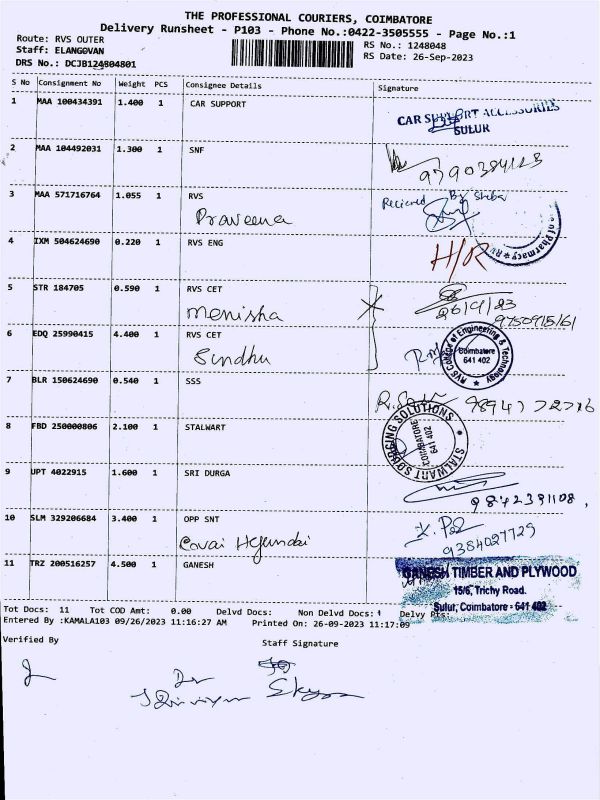 THE PROFESSIONAL COURIERS, COIMBATORE
Delivery Runsheet - P103 - Phone No.:0422-3505555 - Page No.:1
Route: RVS OUTER
RS No.: 1248048
Staff: ELANGOVAN
RS Date: 26-Sep-2023
DRS No.: DCJB124804801
S No Consignment No Weight PCS Consignee Details Signature
1 MAA 100434391 1.400 1 CAR SUPPORT
CAR SUPPORT ACCESSORIES
SULUR
2 MAA 104492031 1.300 1 SNF
3 MAA 571716764 1.055 1 RVS
Praveena
Recieved By
of Pharmacy * RV
4 IXM 504624690 0.220 1 RVS ENG
H/R
5 STR 184705 0.590 1 RVS CET
Menisha
26/9/23
9750915161
6 EDQ 25990415 4.400 1 RVS CET
Sindhu
RVS College of Engineering & Technology
Coimbatore
641 402
7 BLR 150624690 0.540 1 SSS
8 FBD 250000806 2.100 1 STALWART
STALWART SOURCING SOLUTIONS
COIMBATORE
641 402
9 UPT 4022915 1.600 1 SRI DURGA
9842391108,
10 SLM 329206684 3.400 1 OPP SNT
Covai Hyundai
9384027729
11 TRZ 200516257 4.500 1 GANESH
GANESH TIMBER AND PLYWOOD
15/6, Trichy Road.
Sulur, Coimbatore - 641 402
Tot Docs: 11 Tot COD Amt: 0.00 Delvd Docs: Non Delvd Docs: Delvy
Entered By :KAMALA103 09/26/2023 11:16:27 AM Printed On: 26-09-2023 11:17:09
Verified By Staff Signature